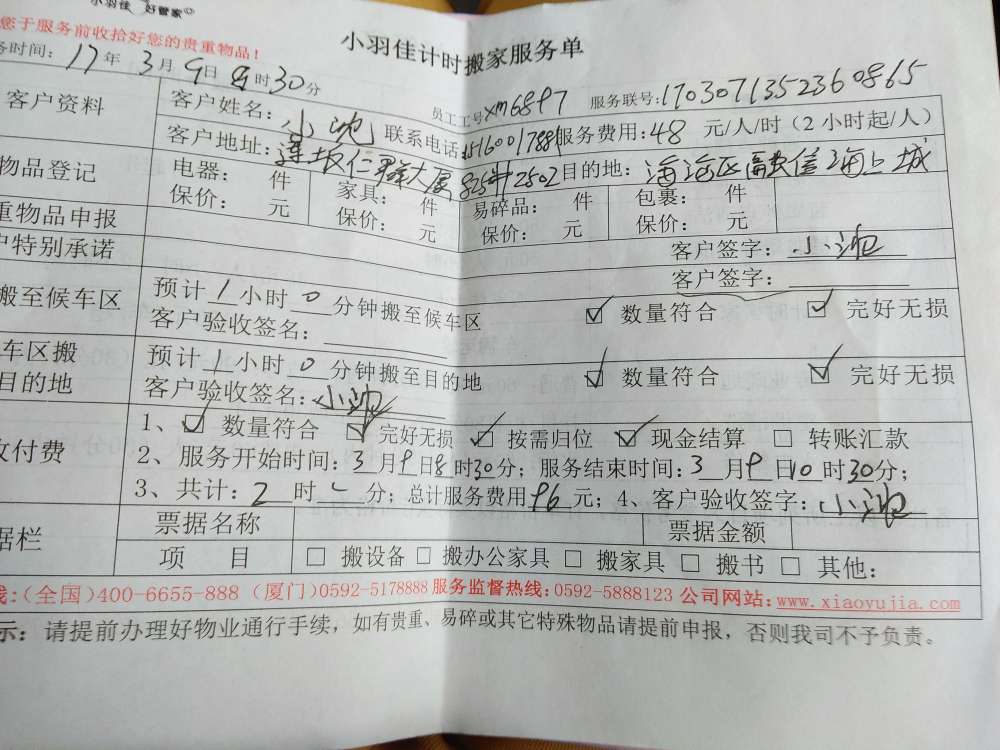 小羽佳 好管家
您于服务前收拾好您的贵重物品！
小羽佳计时搬家服务单
务时间：17年3月9日8时30分
员工工号xm6897 服务联号：1703071352360865
客户资料 客户姓名：小池 联系电话 服务费用：48元/人/时（2小时起/人）
客户地址：莲坂仁 大厦 2502 目的地：海沧区融信海上城
物品登记 电器： 件 家具： 件 易碎品： 件 包裹： 件
保价： 元 保价： 元 保价： 元 保价： 元
重物品申报 客户签字：小池
户特别承诺 客户签字：
搬至候车区 预计1小时0分钟搬至候车区 数量符合 完好无损
客户验收签名：
车区搬 预计1小时0分钟搬至目的地 数量符合 完好无损
目的地 客户验收签名：小池
收付费 1、数量符合 完好无损 按需归位 现金结算 转账汇款
2、服务开始时间：3月9日8时30分；服务结束时间：3月9日10时30分；
3、共计：2时 分；总计服务费用96元；4、客户验收签字：小池
据栏 票据名称 票据金额
项 目 搬设备 搬办公家具 搬家具 搬书 其他：
线：（全国）400-6655-888（厦门）0592-5178888 服务监督热线：0592-5888123 公司网站：www.xiaoyujia.com
示：请提前办理好物业通行手续，如有贵重、易碎或其它特殊物品请提前申报，否则我司不予负责。